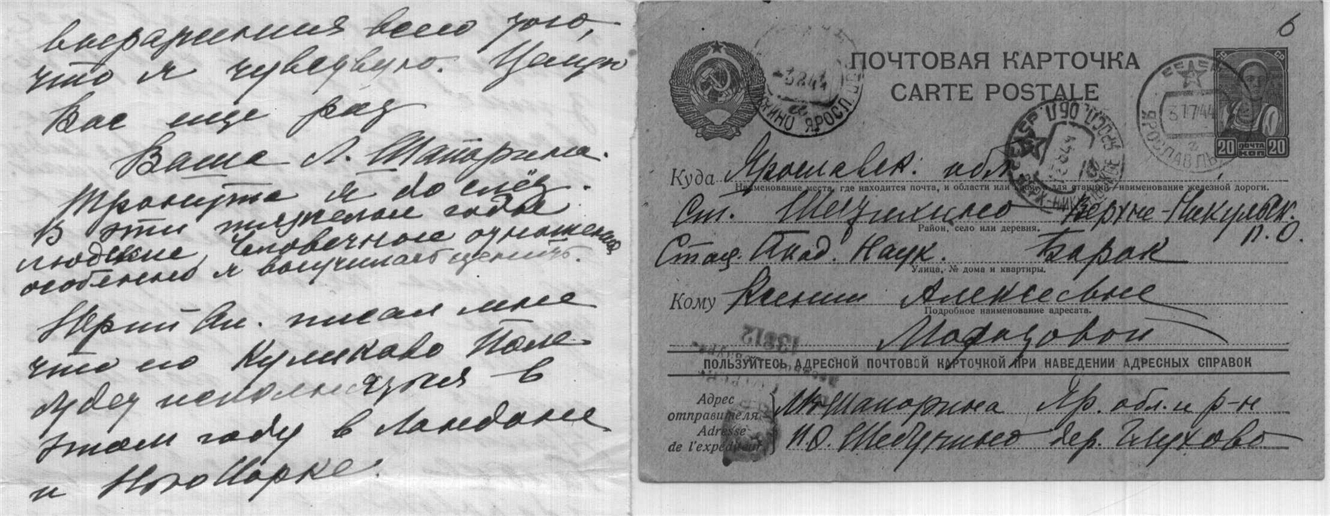 выражения всего того,
что я чувствую. Целую
Вас еще раз
Ваша Л. Шапорина.
Тронута я до слёз.
В эти тяжелые годы
людские, человечные отношения
особенно я выучилась ценить.
Юрий Ал. писал мне
что его Куликово Поле
будет исполняться в
этом году в Лондоне
и Нью Йорке.
6
ПОЧТОВАЯ КАРТОЧКА
CARTE POSTALE
ЯРОСЛАВЛЬ
20 ПОЧТА КОП 20
Куда Ярославск. обл.
Наименование места, где находится почта, и области или края, для станции наименование железной дороги.
ст. Шестихино Верхне-Никульск.
п.о.
Район, село или деревня.
Стан. Акад. Наук. Борок
Улица, № дома и квартиры.
Кому Ксении Алексеевне
Подробное наименование адресата.
Морозовой
ПОЛЬЗУЙТЕСЬ АДРЕСНОЙ ПОЧТОВОЙ КАРТОЧКОЙ ПРИ НАВЕДЕНИИ АДРЕСНЫХ СПРАВОК
Адрес отправителя Шапорина Яр. обл. и р-н
Adresse
de l'expéditeur п.о. дер. Глухово